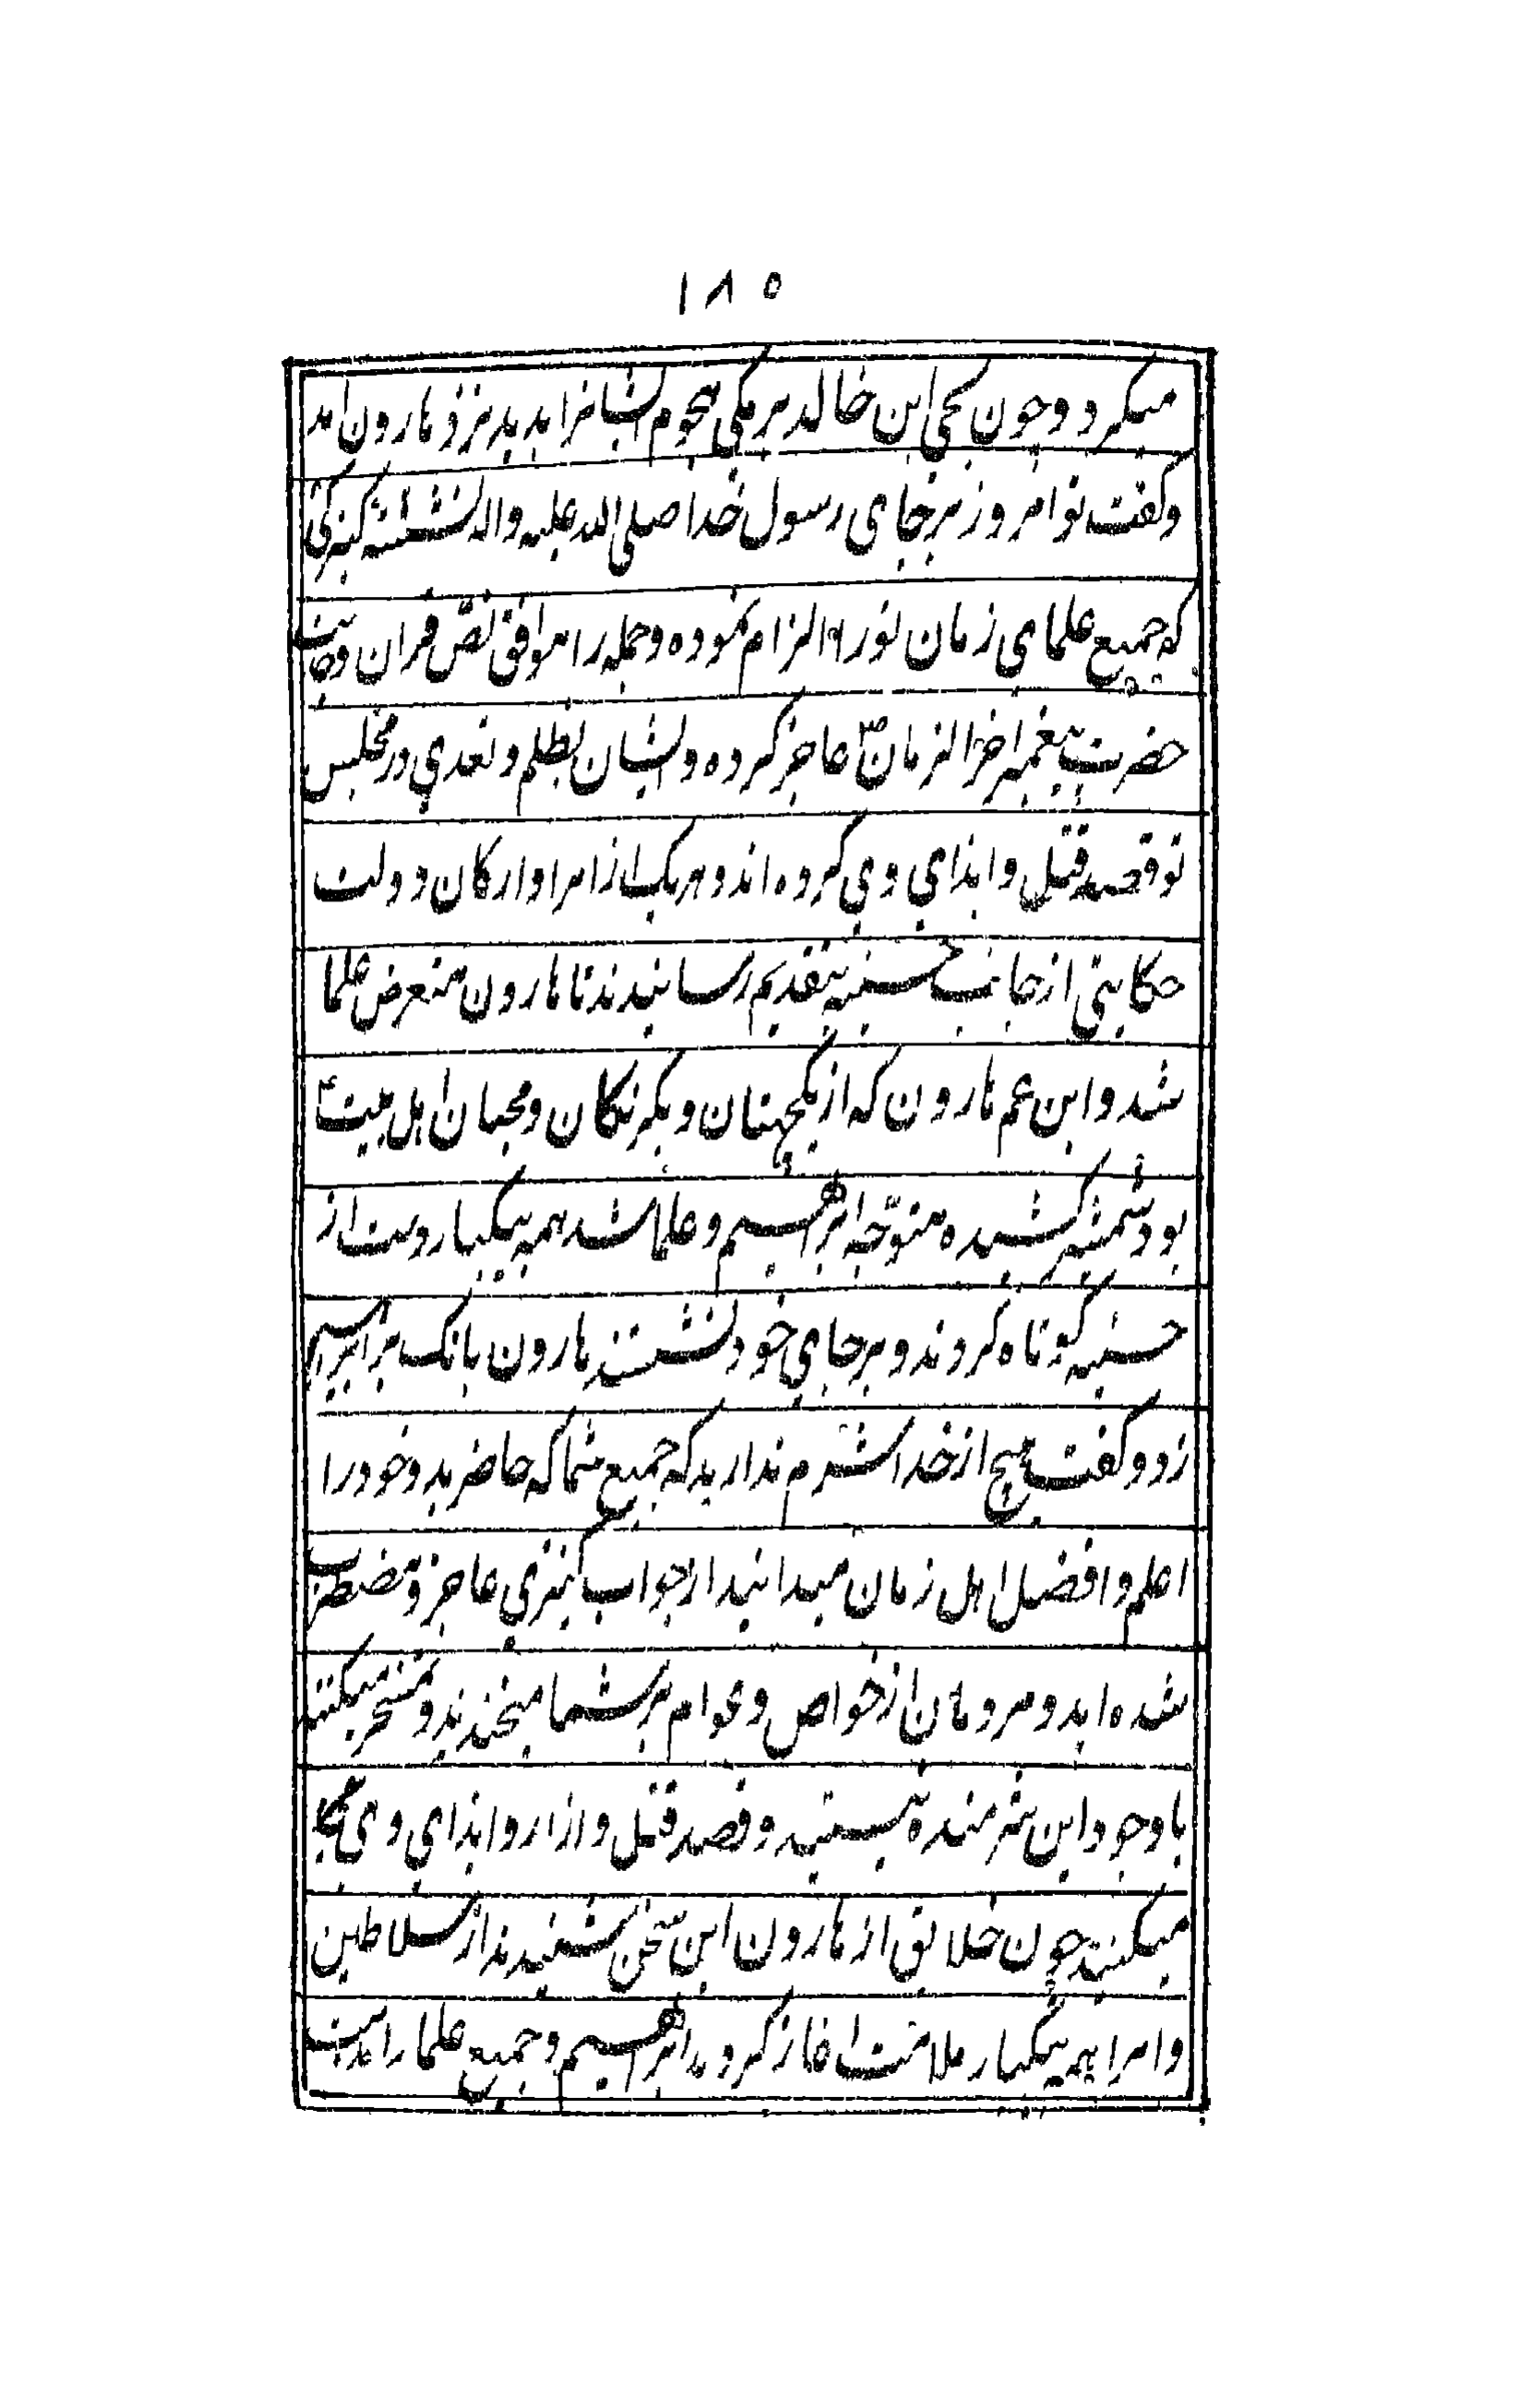 ۱۸۵
میکرد و چون یحیی ابن خالد برمکی هجوم ایشانرا بدید نزد هارون امد
و گفت تو امروز بر جای رسول خدا صلی الله علیه واله نشسته کنیزکی
که جمیع علمای زمان تو را الزام نموده و جمله را موافق نص قران و
حضرت پیغمبر اخر الزمان ص عاجز کرده و ایشان بظلم و تعدی در مجلس
تو قصد قتل و ایذای وی کرده اند و هر یک از امرا و ارکان دولت
حکایتی از جانب حسنیه بتقدیم رسانیدند تا هارون متعرض علما
شد و ابن عم هارون که از یکجهتان و یکرنگان و محبان اهل بیت ع
بود شمشیر کشیده متوجه ابراهیم و علما شد همه بیکبار دست از
حسنیه کوتاه کردند و بر جای خود نشستند هارون بانک بر ابراهیم
زد و گفت هیچ از خدا شرم ندارید که جمیع شما که حاضرید و خود را
اعلم و افضل اهل زمان میدانید از جواب کنیزی عاجز و مضطرب
شده اید و مردمان از خواص و عوام بر شما میخندند و تمسخر میکنند
با وجود این شرمنده نیستید و قصد قتل و ازار و ایذای وی
میکنید چون خلایق از هارون این سخن شنیدند از سلاطین
و امرا همه بیکبار ملامت اغاز کردند ابراهیم و جمیع علما را